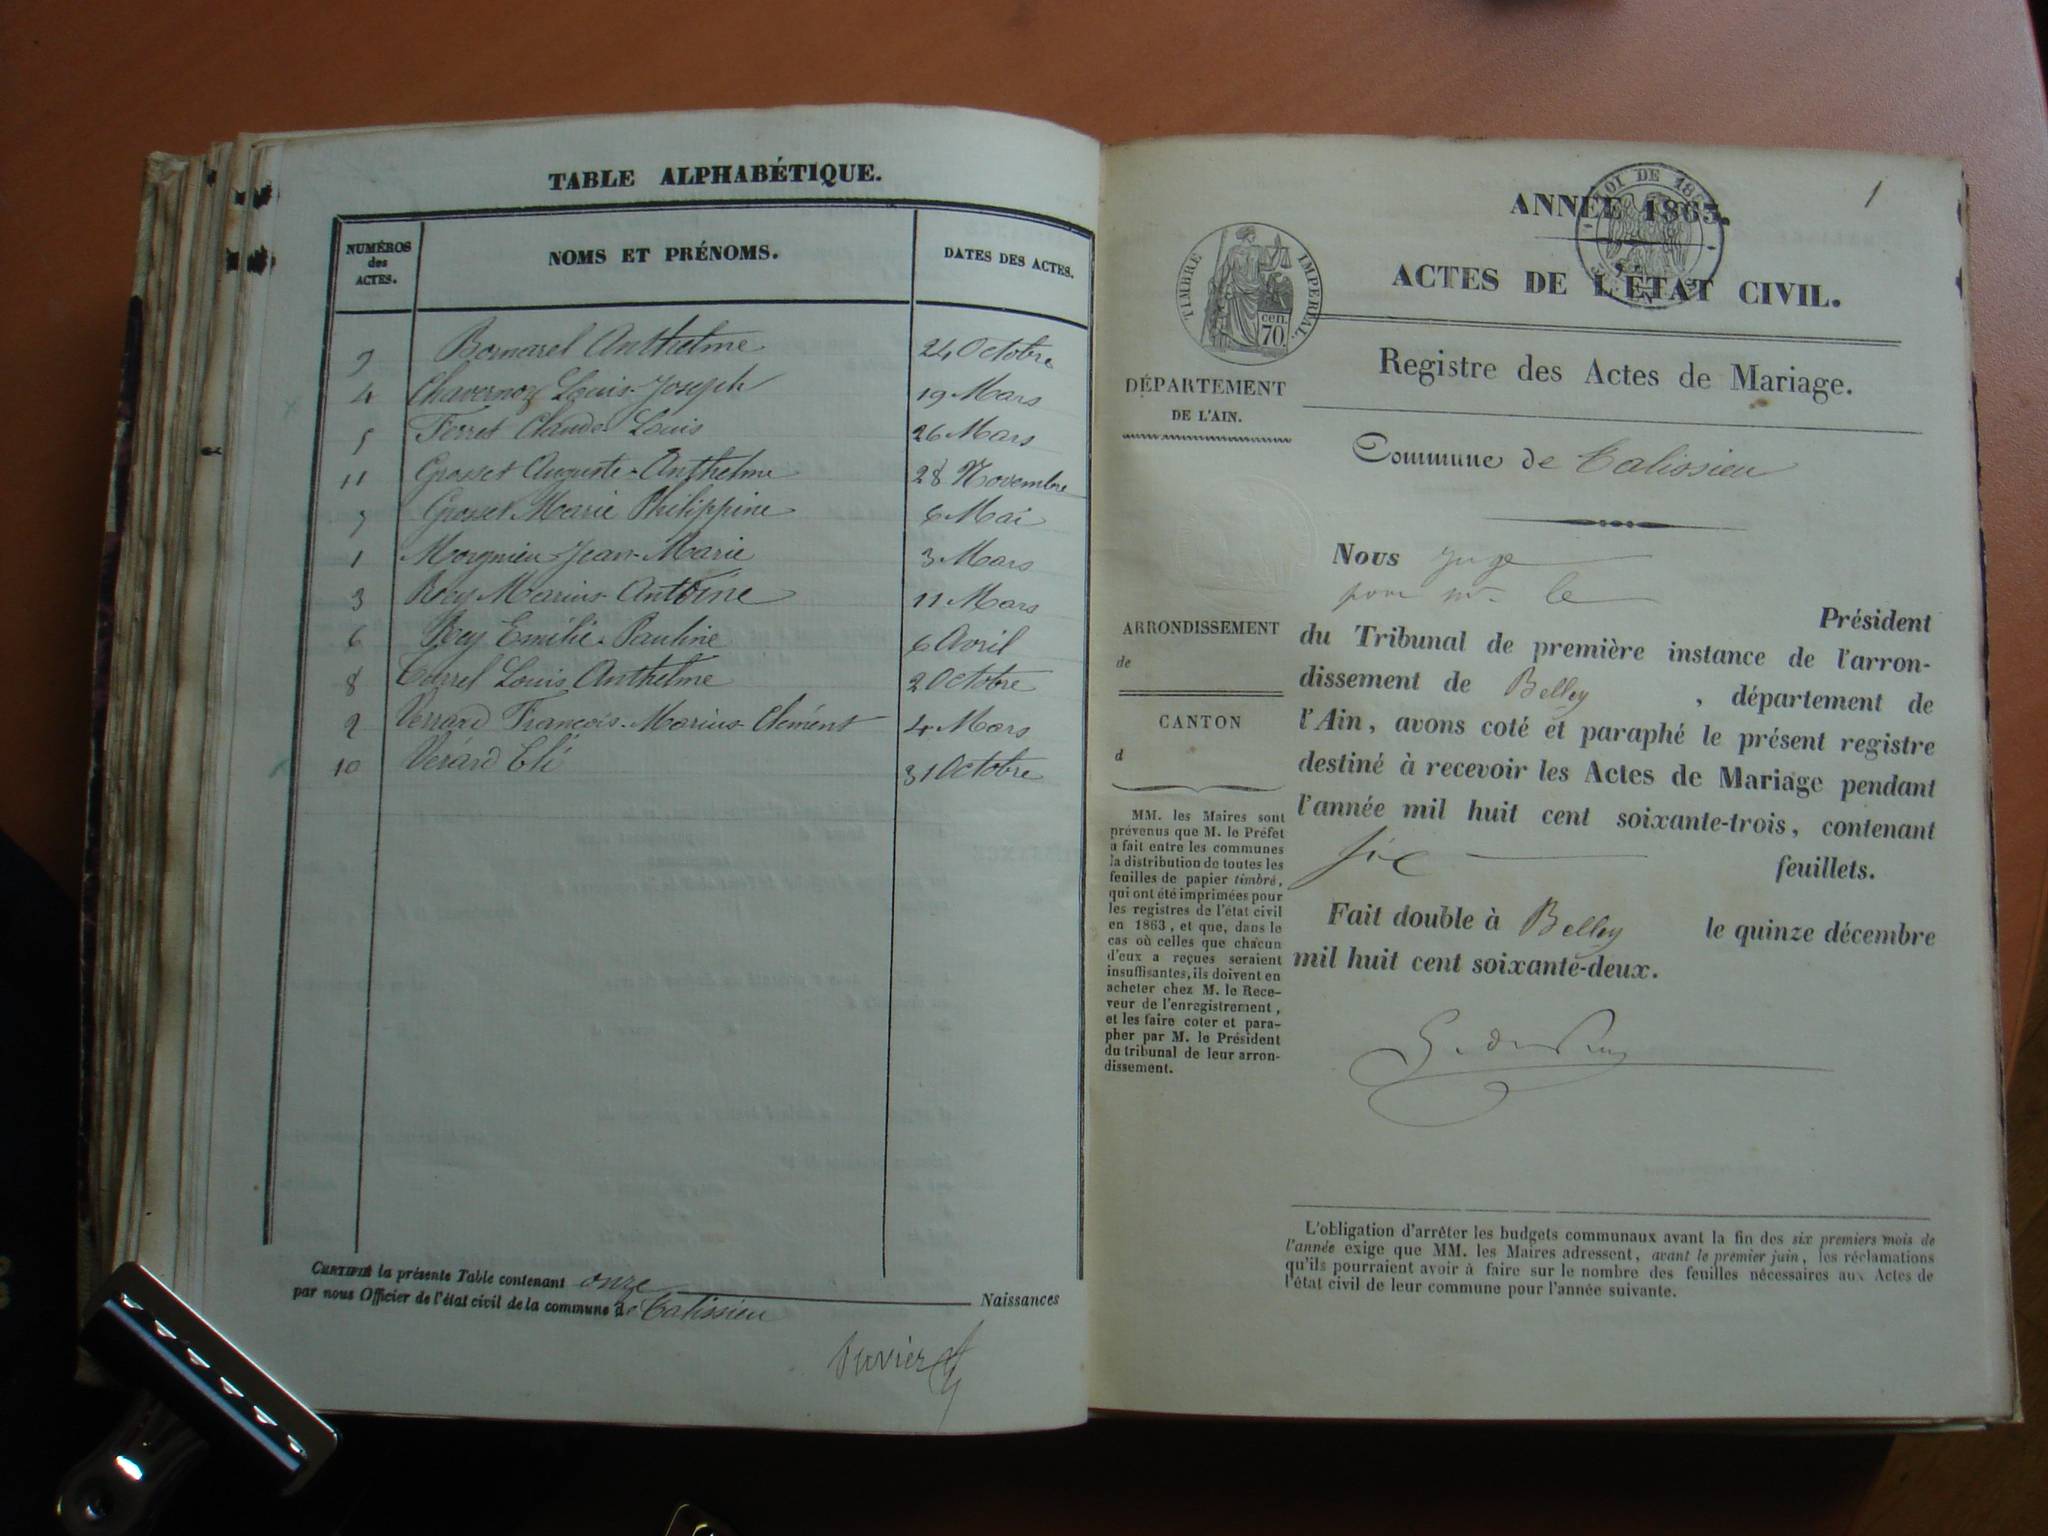 TABLE ALPHABÉTIQUE.
NUMÉROS des ACTES. NOMS ET PRÉNOMS. DATES DES ACTES.
9 Bornarel Anthelme 24 Octobre
4 Chavernoz Louis-Joseph 19 Mars
5 Ferret Claude Louis 26 Mars
11 Grosset Auguste-Anthelme 28 Novembre
7 Grosset Marie Philippine 6 Mai
1 Morgnieu Jean-Marie 3 Mars
3 Rey Marius Antoine 11 Mars
6 Rey Emilie-Pauline 6 Avril
8 Louis Anthelme 2 Octobre
2 Verrard François-Marius-Clément 4 Mars
10 Vérard Eli 31 Octobre
CERTIFIÉ la présente Table contenant onze Naissances
par nous Officier de l'état civil de la commune de Talissieu
Juvier
1
LOI DE
ANNÉE 1863.
ACTES DE L'ÉTAT CIVIL.
TIMBRE IMPÉRIAL
70 cen.
Registre des Actes de Mariage.
DÉPARTEMENT
DE L'AIN.
Commune de Talissieu
Nous Juge
pour mr le
Président
du Tribunal de première instance de l'arron-
dissement de Belley, département de
l'Ain, avons coté et paraphé le présent registre
destiné à recevoir les Actes de Mariage pendant
l'année mil huit cent soixante-trois, contenant
six feuillets.
Fait double à Belley le quinze décembre
mil huit cent soixante-deux.
ARRONDISSEMENT
de
CANTON
d
MM. les Maires sont
prévenus que M. le Préfet
a fait entre les communes
la distribution de toutes les
feuilles de papier timbré,
qui ont été imprimées pour
les registres de l'état civil
en 1863, et que, dans le
cas où celles que chacun
d'eux a reçues seraient
insuffisantes, ils doivent en
acheter chez M. le Rece-
veur de l'enregistrement,
et les faire coter et para-
pher par M. le Président
du tribunal de leur arron-
dissement.
L'obligation d'arrêter les budgets communaux avant la fin des six premiers mois de
l'année exige que MM. les Maires adressent, avant le premier juin, les réclamations
qu'ils pourraient avoir à faire sur le nombre des feuilles nécessaires aux Actes de
l'état civil de leur commune pour l'année suivante.